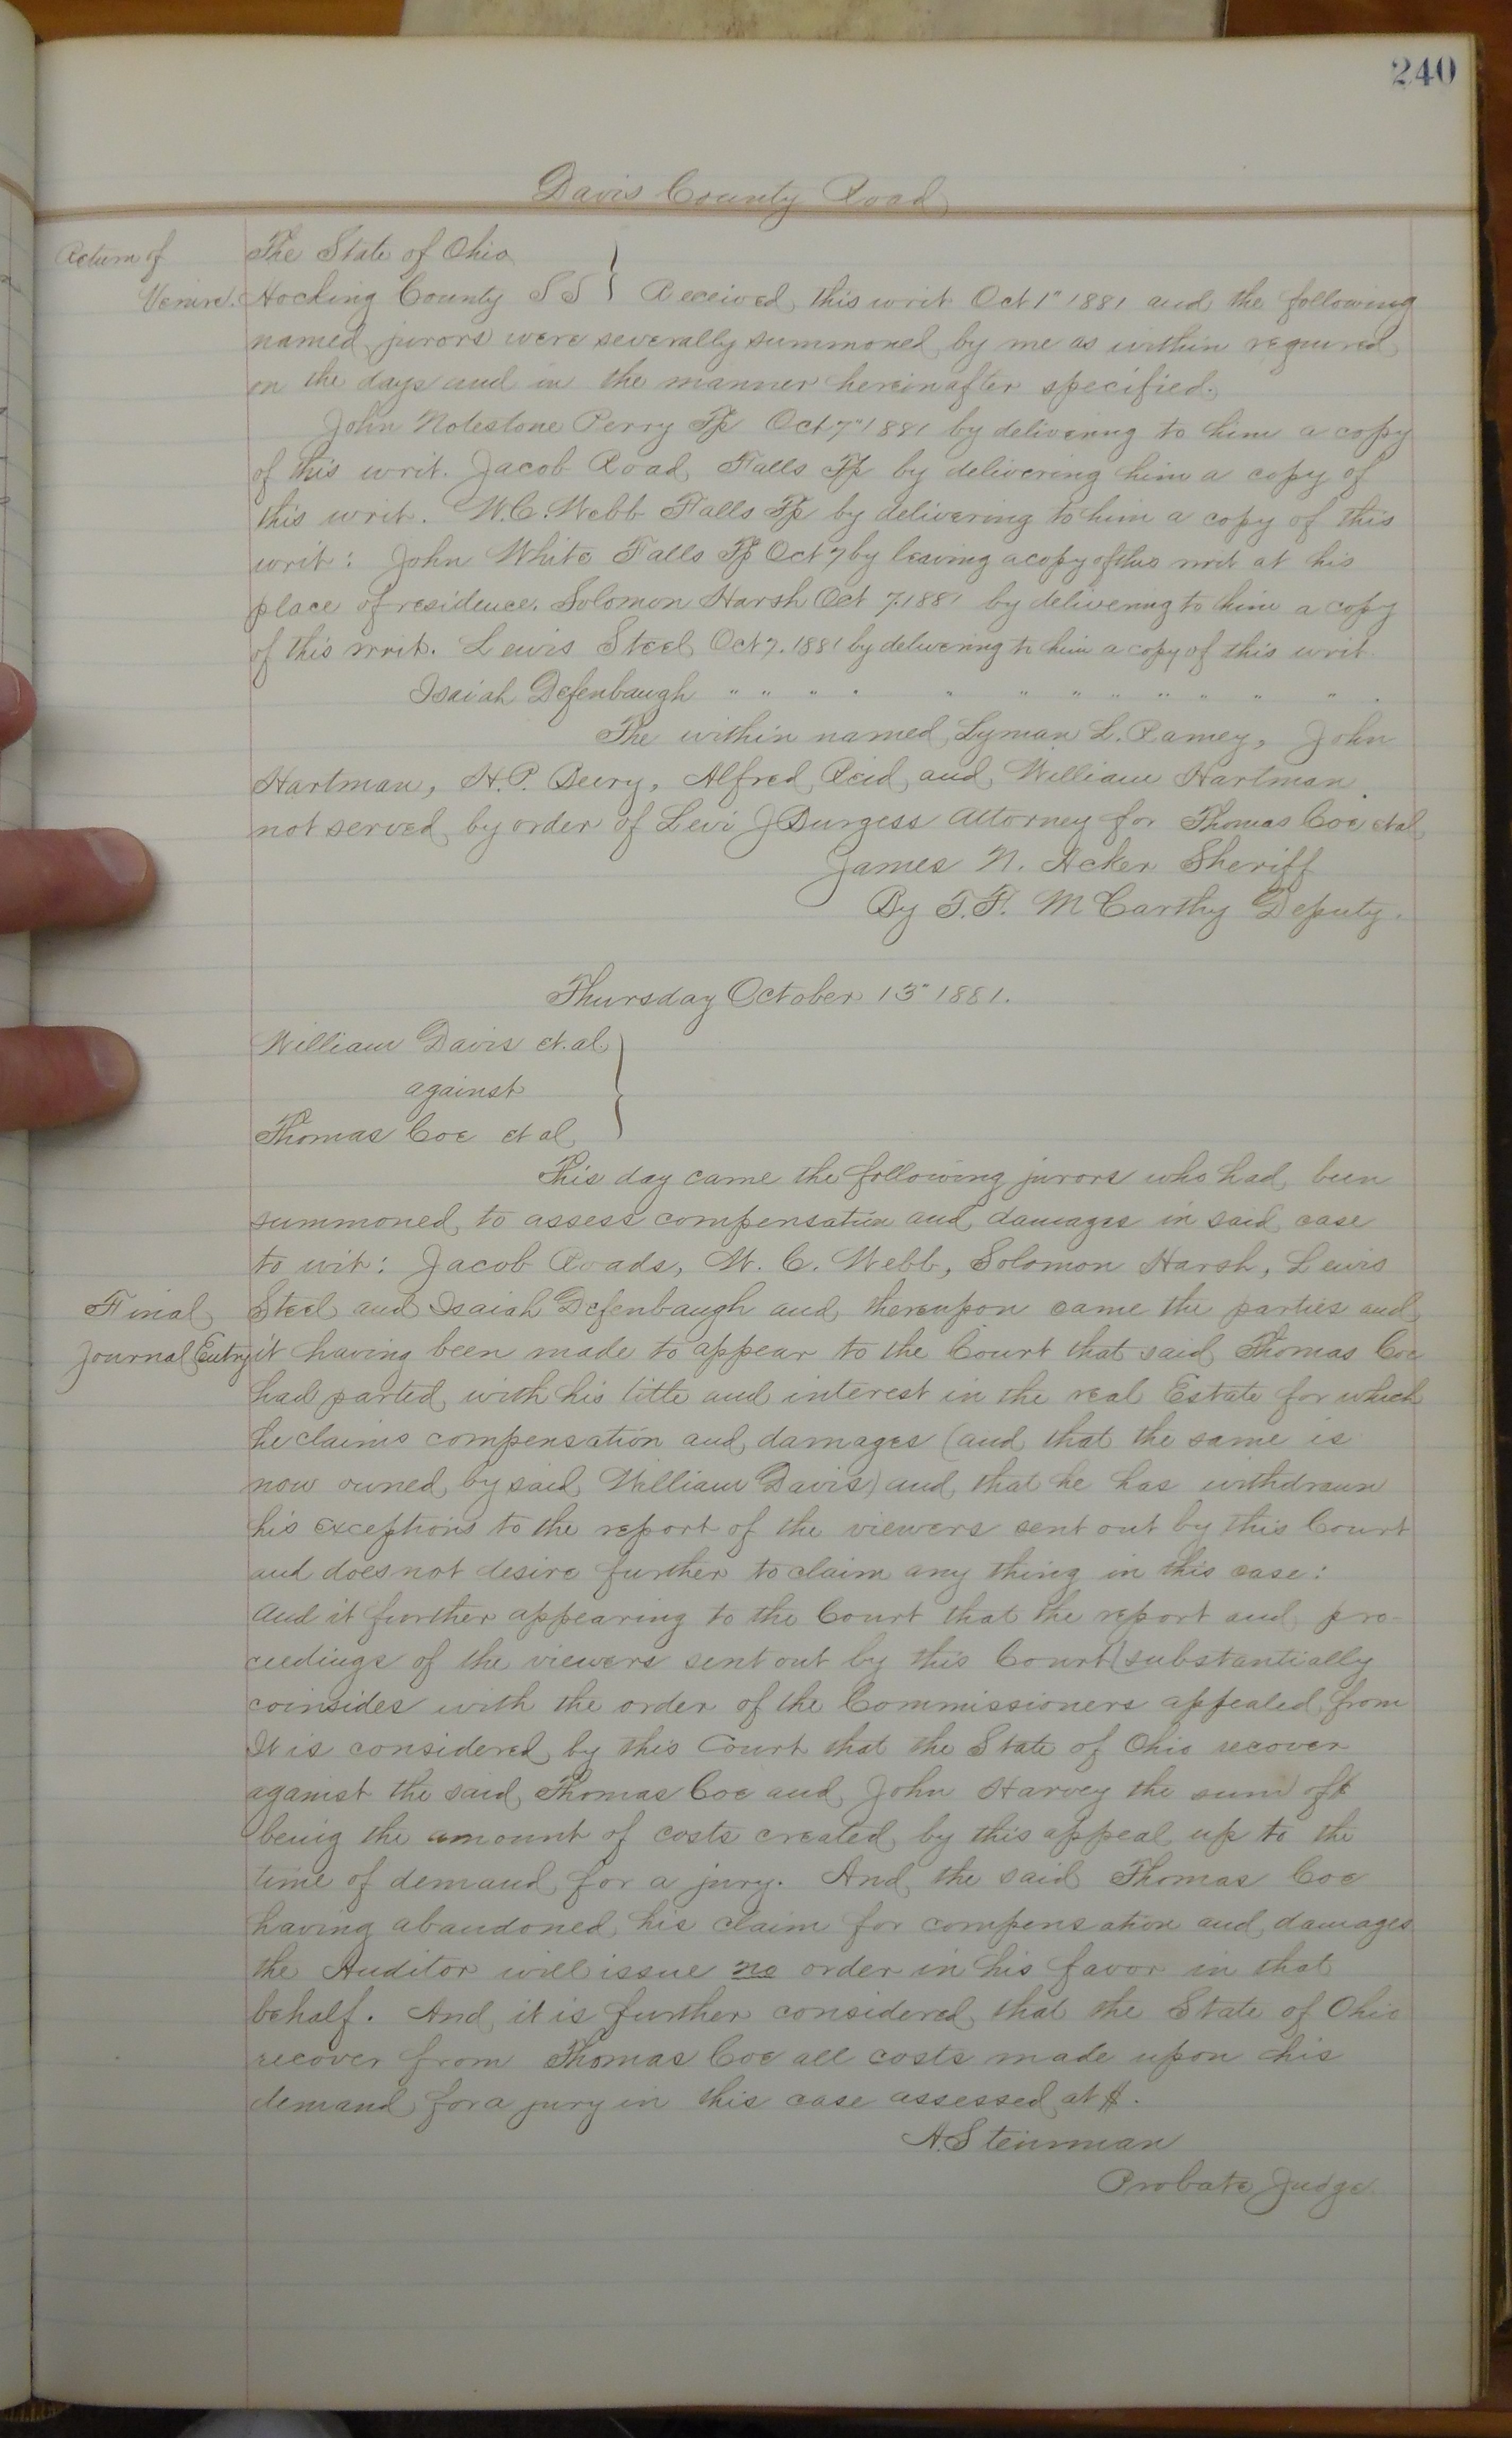 240
Davis County Road
Return of
Venire.
The State of Ohio }
Hocking County SS } Received this writ Oct 1" 1881 and the following
named jurors were severally summoned by me as within required
on the days and in the manner hereinafter specified.
John Notestone Perry Tp Oct 7" 1881 by delivering to him a copy
of this writ. Jacob Road Falls Tp by delivering him a copy of
this writ. W.C. Webb Falls Tp by delivering to him a copy of this
writ: John White Falls Tp Oct 7 by leaving a copy of this writ at his
place of residence. Solomon Harsh Oct 7. 1881 by delivering to him a copy
of this writ. Lewis Steel Oct 7. 1881 by delivering to him a copy of this writ
Isaiah Defenbaugh " " " " " " " " " " " "
The within named Lyman L. Ramey, John
Hartman, H.P. Beery, Alfred Reid and William Hartman
not served by order of Levi J Burgess Attorney for Thomas Coe et al
James N. Acker Sheriff
By T.F. McCarthy Deputy.
Thursday October 13" 1881.
William Davis et.al }
against
Thomas Coe et al
This day came the following jurors who had been
summoned to assess compensation and damages in said case
to wit: Jacob Roads, W. C. Webb, Solomon Harsh, Lewis
Final
Journal Entry
Steel and Isaiah Defenbaugh and thereupon came the parties and
it having been made to appear to the Court that said Thomas Coe
had parted with his title and interest in the real Estate for which
he claims compensation and damages (and that the same is
now owned by said William Davis) and that he has withdrawn
his exceptions to the report of the viewers sent out by this Court
and does not desire further to claim any thing in this case:
And it further appearing to the Court that the report and pro-
ceedings of the viewers sent out by this Court substantially
coinsides with the order of the Commissioners appealed from
It is considered by this Court that the State of Ohio recover
against the said Thomas Coe and John Harvey the sum of $
being the amount of costs created by this appeal up to the
time of demand for a jury. And the said Thomas Coe
having abandoned his claim for compensation and damages
the Auditor will issue no order in his favor in that
behalf. And it is further considered that the State of Ohio
recover from Thomas Coe all costs made upon his
demand for a jury in this case assessed at $.
A. Steinman
Probate Judge